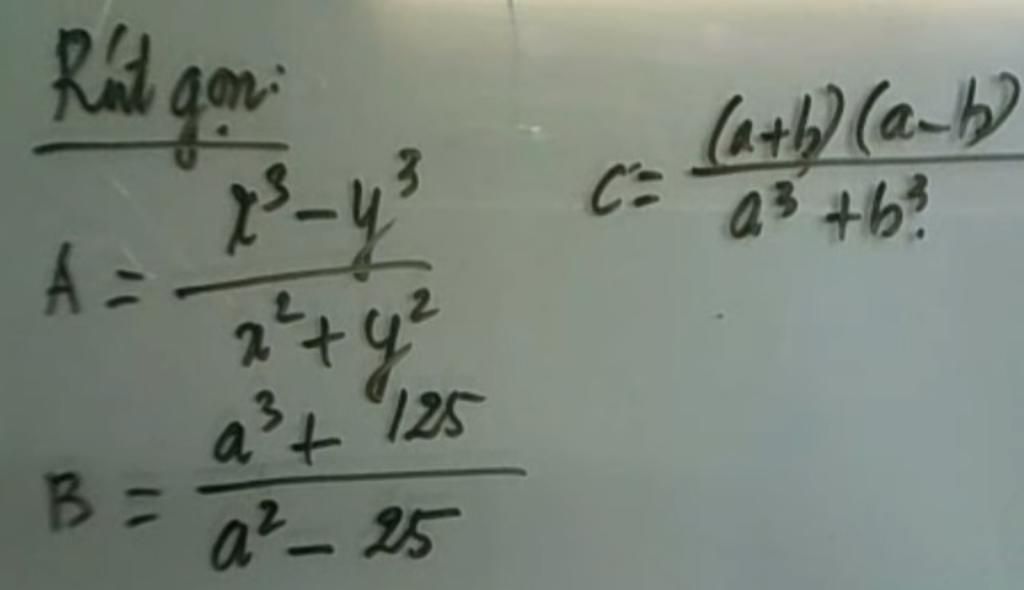 Rút gọn:
A = \frac{x^3 - y^3}{x^2 + y^2}
B = \frac{a^3 + 125}{a^2 - 25}
C = \frac{(a+b)(a-b)}{a^3 + b^3}.